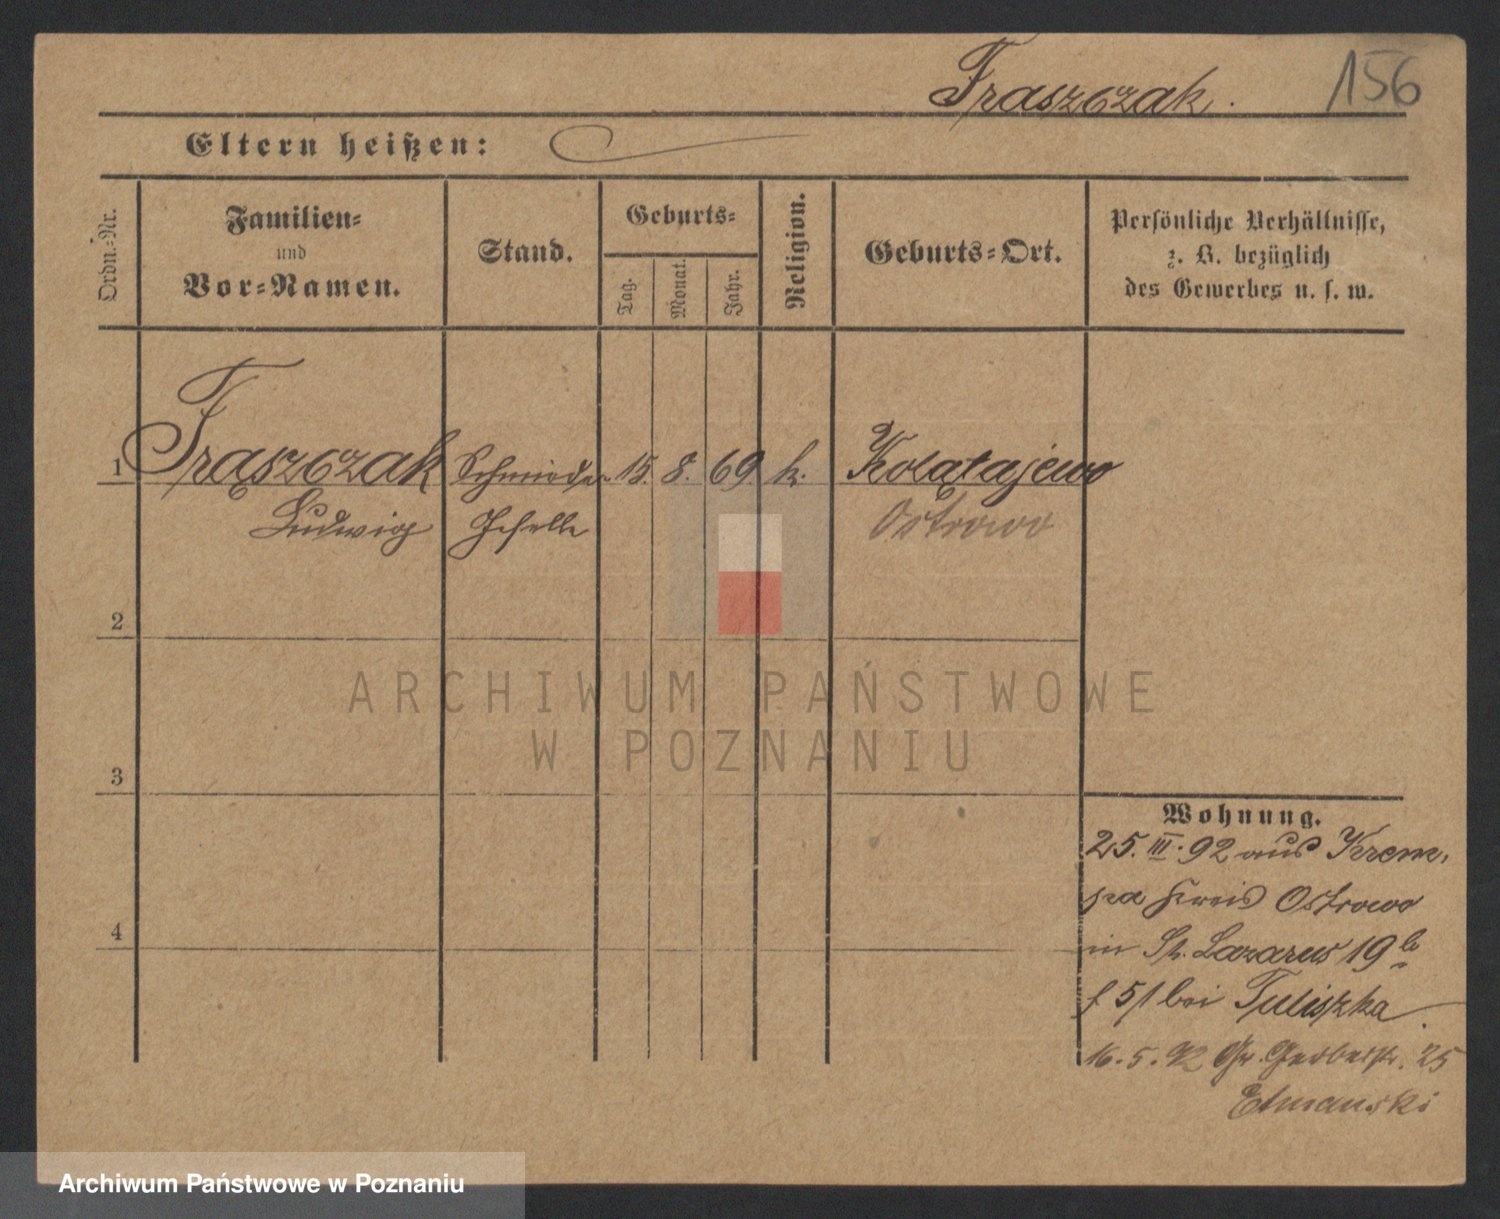 Fraszczak.
156
Eltern heißen:
Ordn.-Nr.
Familien-
und
Vor-Namen.
Stand.
Geburts-
Tag.
Monat.
Jahr.
Religion.
Geburts-Ort.
Persönliche Verhältnisse,
z. B. bezüglich
des Gewerbes u. s. w.
1 Frąszczak Schmiede- 15. 8. 69 k. Kołątajewo
Ludwig Geselle Ostrowo
2
ARCHIWUM PAŃSTWOWE
W POZNANIU
3
Wohnung.
25. III. 92 aus Krem,
pa Kreis Ostrowo
4
in St. Lazarus 19 b
bei Tuliszka.
16. 5. 92 Gr. Gerberstr. 25
Etmanski
Archiwum Państwowe w Poznaniu